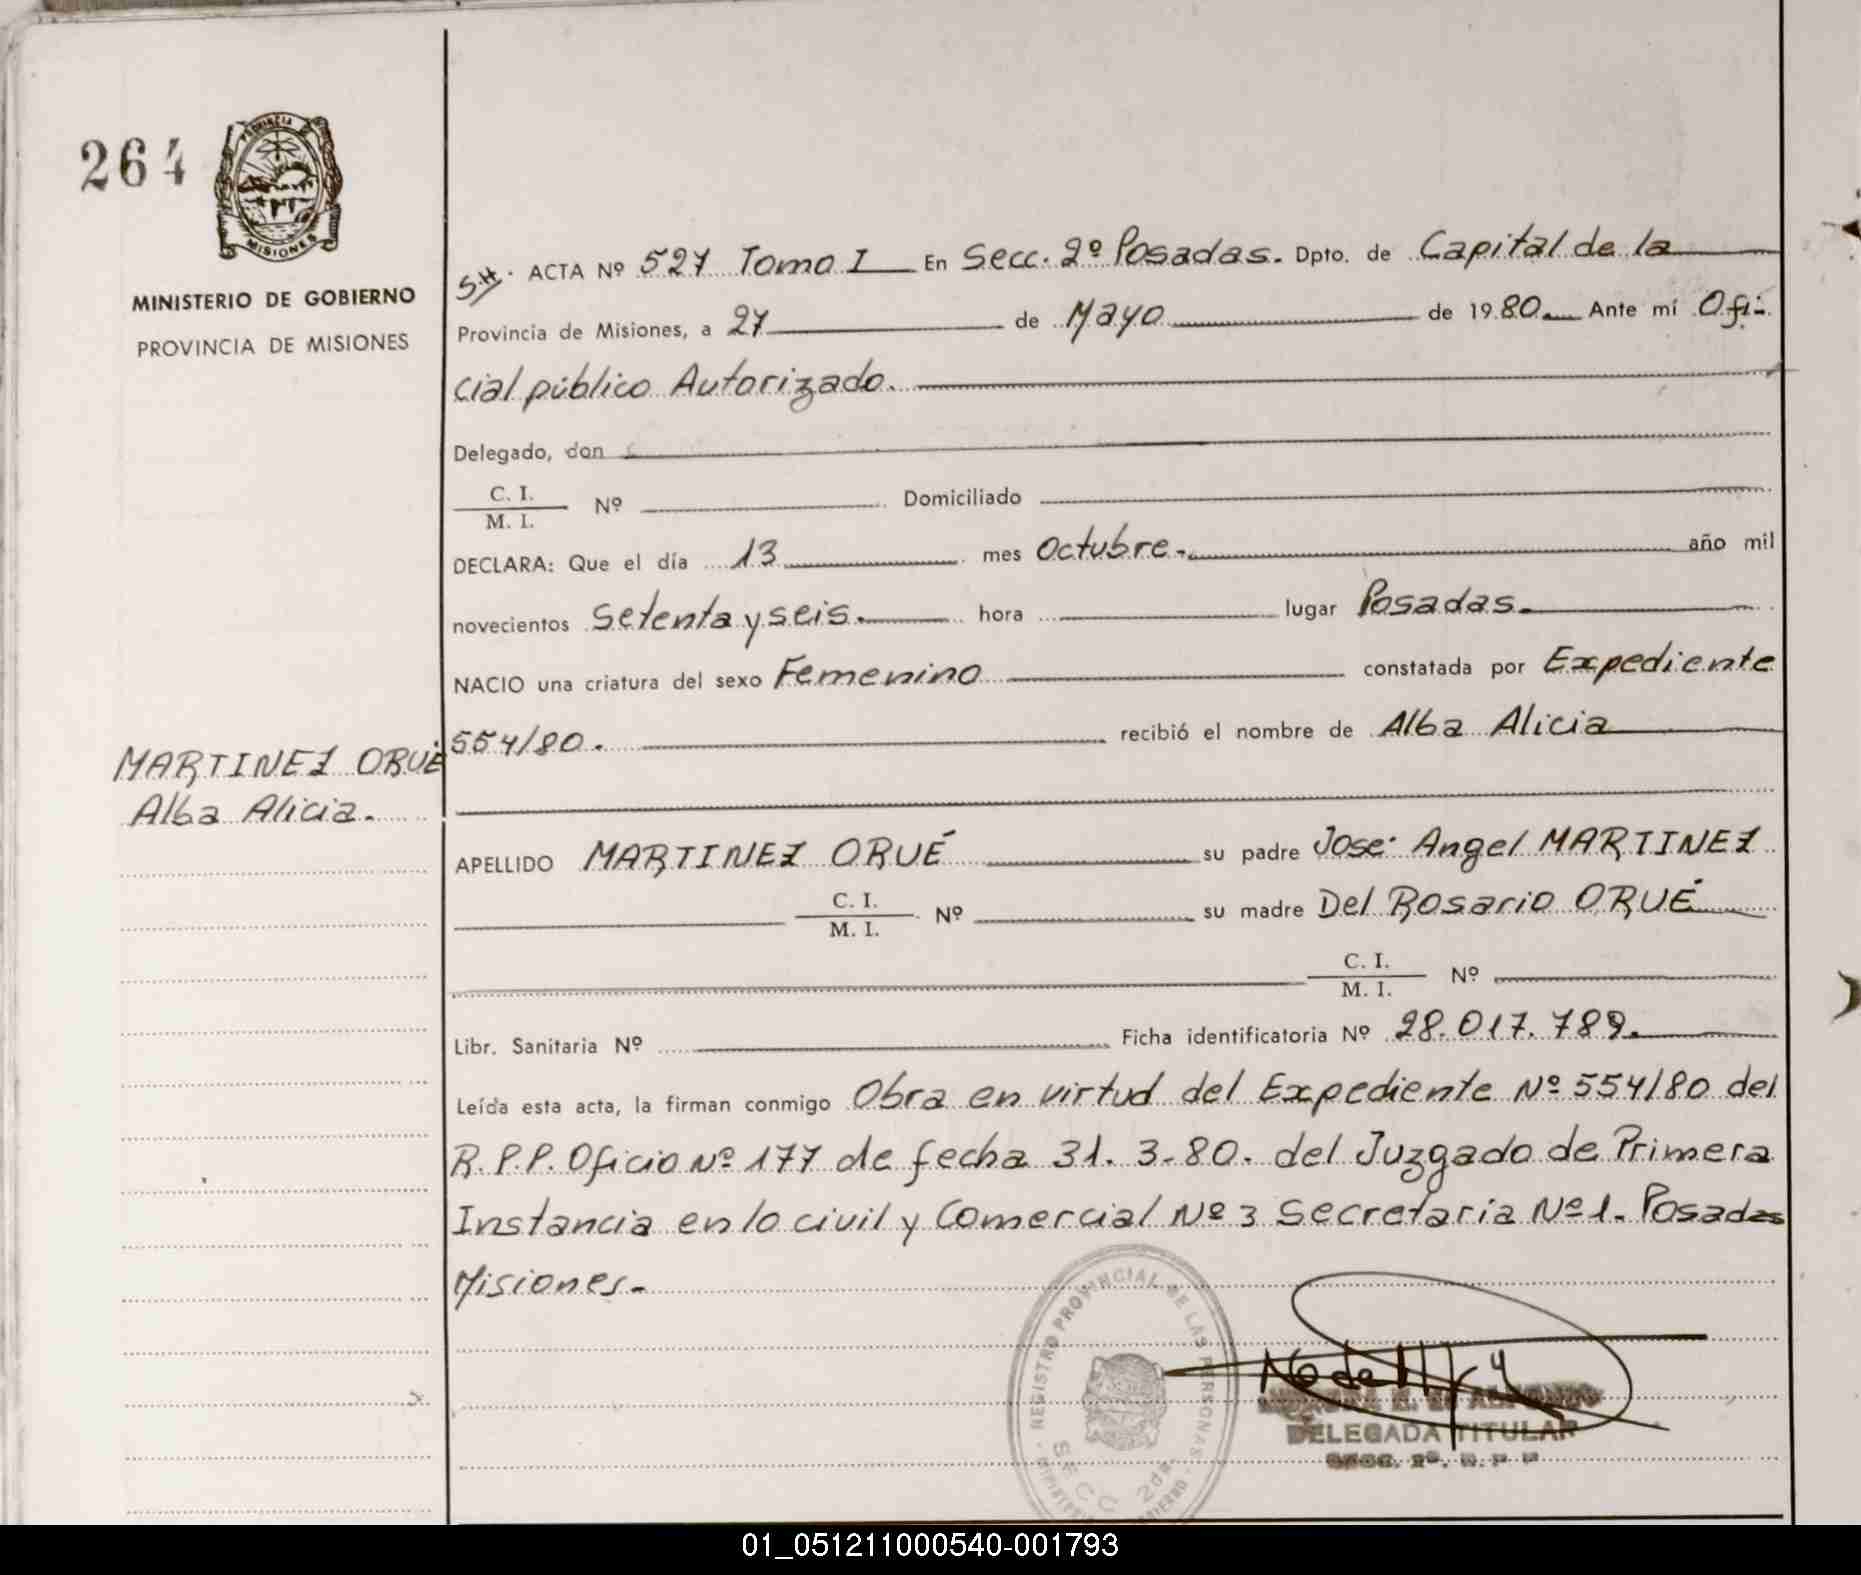 264
PROVINCIA
MISIONES
MINISTERIO DE GOBIERNO
PROVINCIA DE MISIONES
S.H. ACTA Nº 527 Tomo I En Secc. 2º Posadas. Dpto. de Capital de la
Provincia de Misiones, a 27 de Mayo de 1980. Ante mí Ofi-
cial público Autorizado.
Delegado, don
C. I.
M. I. Nº Domiciliado
DECLARA: Que el día 13 mes Octubre.- año mil
novecientos setenta y seis. hora lugar Posadas.
NACIO una criatura del sexo Femenino constatada por Expediente
554/80. recibió el nombre de Alba Alicia
MARTINEZ ORUÉ
Alba Alicia.
APELLIDO MARTINEZ ORUÉ su padre José Angel MARTINEZ
C. I.
M. I. Nº su madre Del Rosario ORUÉ
C. I.
M. I. Nº
Libr. Sanitaria Nº Ficha identificatoria Nº 28.017.789.
Leída esta acta, la firman conmigo Obra en virtud del Expediente Nº 554/80 del
R.P.P. Oficio Nº 177 de fecha 31. 3-80. del Juzgado de Primera
Instancia en lo civil y Comercial Nº 3 Secretaria Nº 1. Posadas
Misiones.-
REGISTRO PROVINCIAL DE LAS PERSONAS
SECC 2da
DELEGADA TITULAR
SECC. 2º. R. P. P
01_051211000540-001793